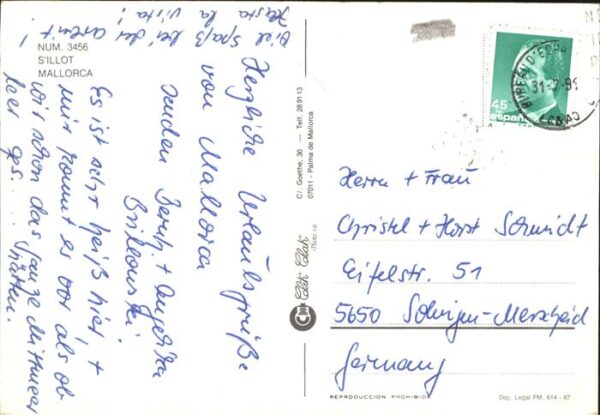 NUM. 3456
S'ILLOT
MALLORCA
Herzliche Urlaubsgrüße
von Mallorca
senden Bernh. + Angelika
Es ist sehr heiß hier, +
mir kommt es vor als ob
wir schon das ganze Mittelmeer
leer ges.... hätten.
Viel Spaß bei der arbeit!
Hasta la vista!
C/. Goethe, 30 — Telf. 28 91 13
07011 - Palma de Mallorca
Click Clak
45
españa
31-7-9
Herrn + Frau
Christel + Horst Schmidt
Eifelstr. 51
5650 Solingen-Merscheid
Germany
REPRODUCCION PROHIBIDA
Dep. Legal PM. 614 - 87